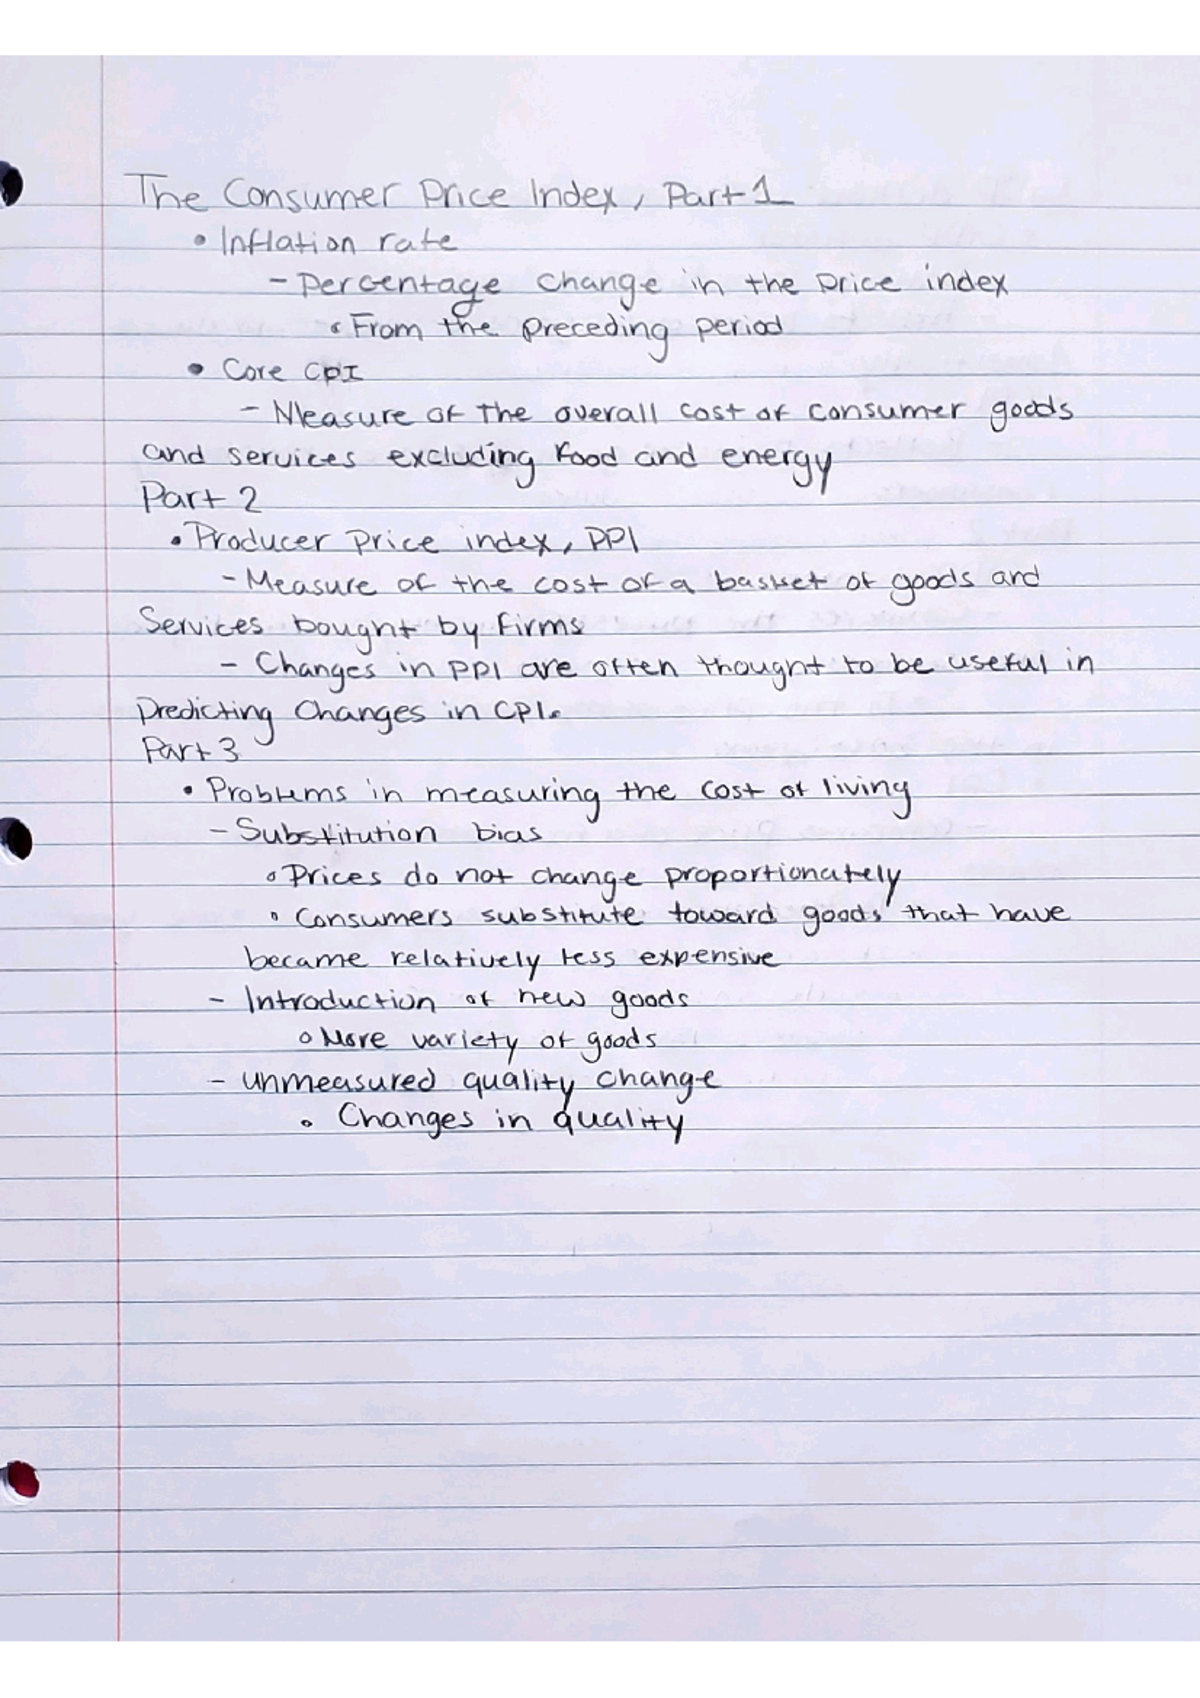 The Consumer Price Index, Part 1
• Inflation rate
- Percentage change in the price index
• From the preceding period
• Core CPI
- Measure of the overall cost of consumer goods
and services excluding food and energy
Part 2
• Producer price index, PPI
- Measure of the cost of a basket of goods and
Services bought by firms
- Changes in PPI are often thought to be useful in
Predicting Changes in CPI.
Part 3
• Problems in measuring the cost of living
- Substitution bias
• Prices do not change proportionately
• Consumers substitute toward goods that have
became relatively less expensive
- Introduction of new goods
• More variety of goods
- unmeasured quality change
• Changes in quality